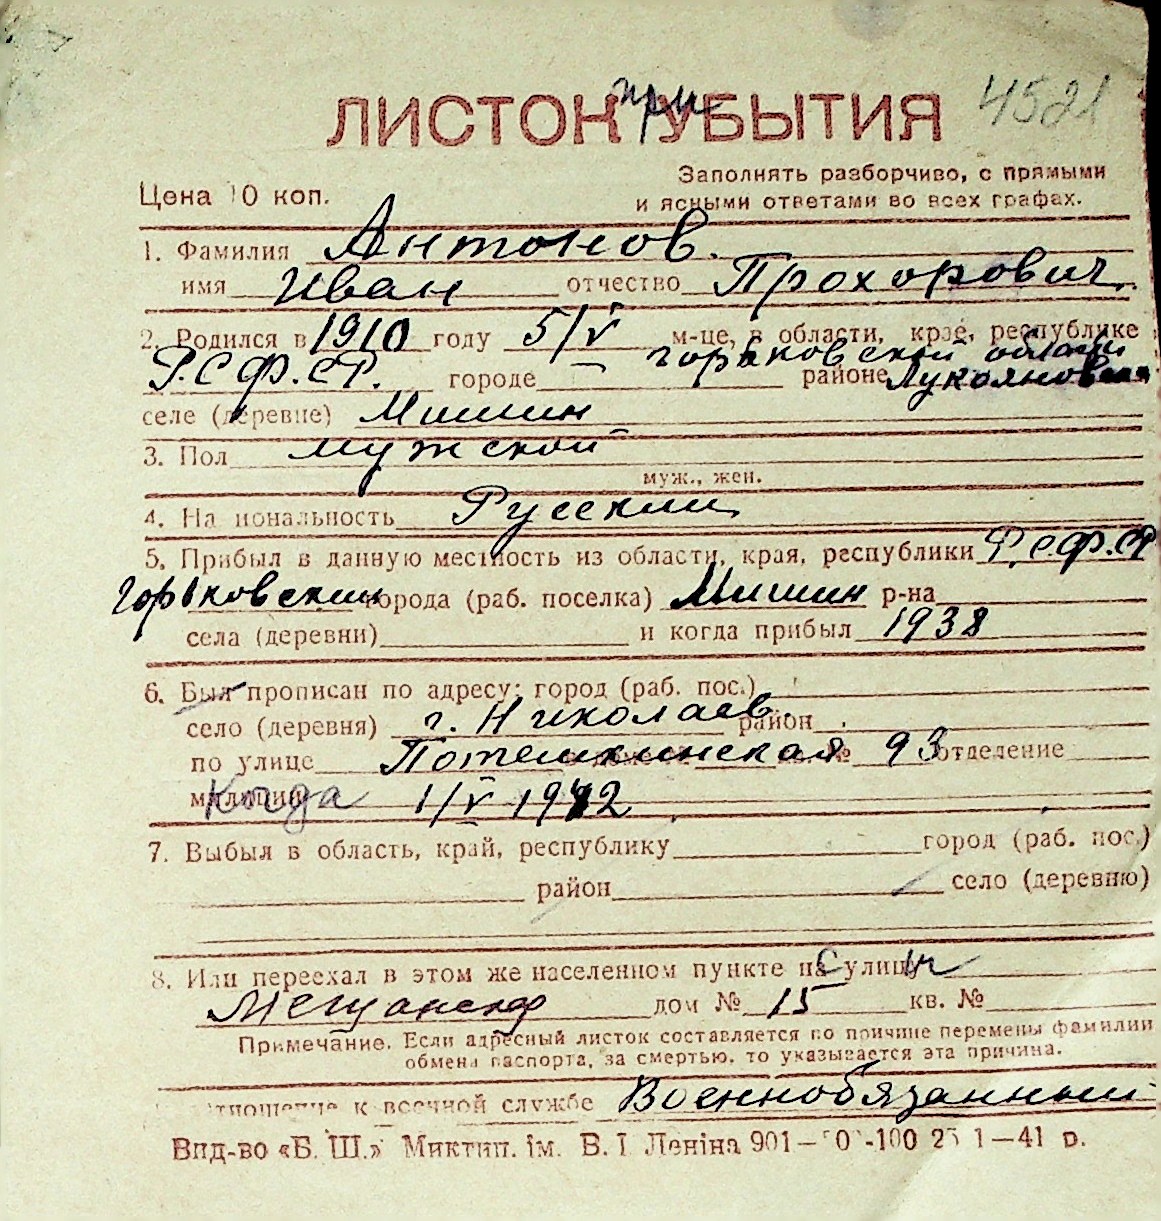 4521
ЛИСТОК при УБЫТИЯ
Цена 10 коп.
Заполнять разборчиво, с прямыми
и ясными ответами во всех графах.
1. Фамилия Антонов.
имя Иван отчество Прохорович
2. Родился в 1910 году 5/V м-це, в области, крае, республике
Р.С.Ф.СР. городе горьковской области районе Лукояновск
селе (деревне) Мишин
3. Пол мужской
муж., жен.
4. Национальность Русский
5. Прибыл в данную местность из области, края, республики Р.С.Ф.СР
горьковский города (раб. поселка) Мишин р-на
села (деревни) и когда прибыл 1938
6. Был прописан по адресу: город (раб. пос.)
село (деревня) г. Николаев район
по улице Потемкинская № 93 отделение
милиции Когда 1/V 1942
7. Выбыл в область, край, республику город (раб. пос.)
район село (деревню)
8. Или переехал в этом же населенном пункте на улицу
дом № 15 кв. №
Примечание. Если адресный листок составляется по причине перемены фамилии
обмена паспорта, за смертью, то указывается эта причина.
Отношение к военной службе Военнобязанный
Вид-во «Б. Ш.» Миктип. ім. В. І. Леніна 901 — 100 25 1—41 р.